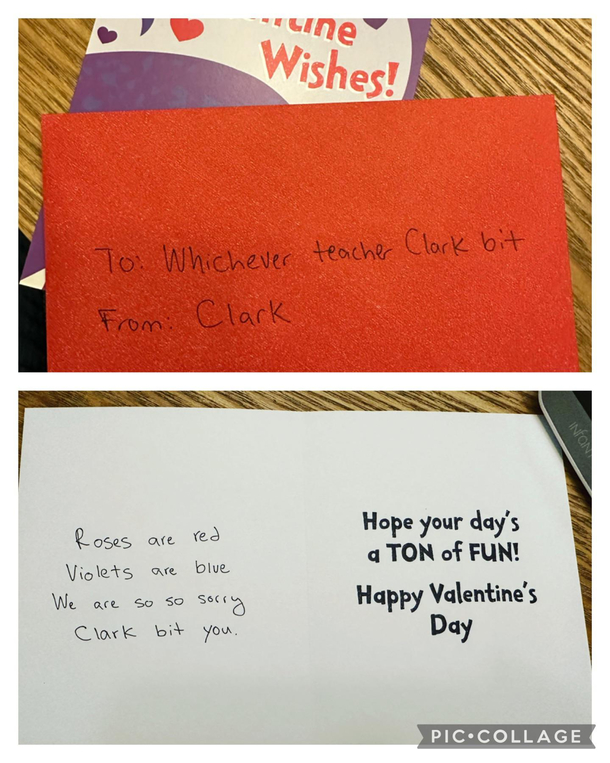 Wishes!
To: Whichever teacher Clark bit
From: Clark
Roses are red
Violets are blue
We are so so sorry
Clark bit you.
Hope your day's
a TON of FUN!
Happy Valentine's
Day
PIC•COLLAGE